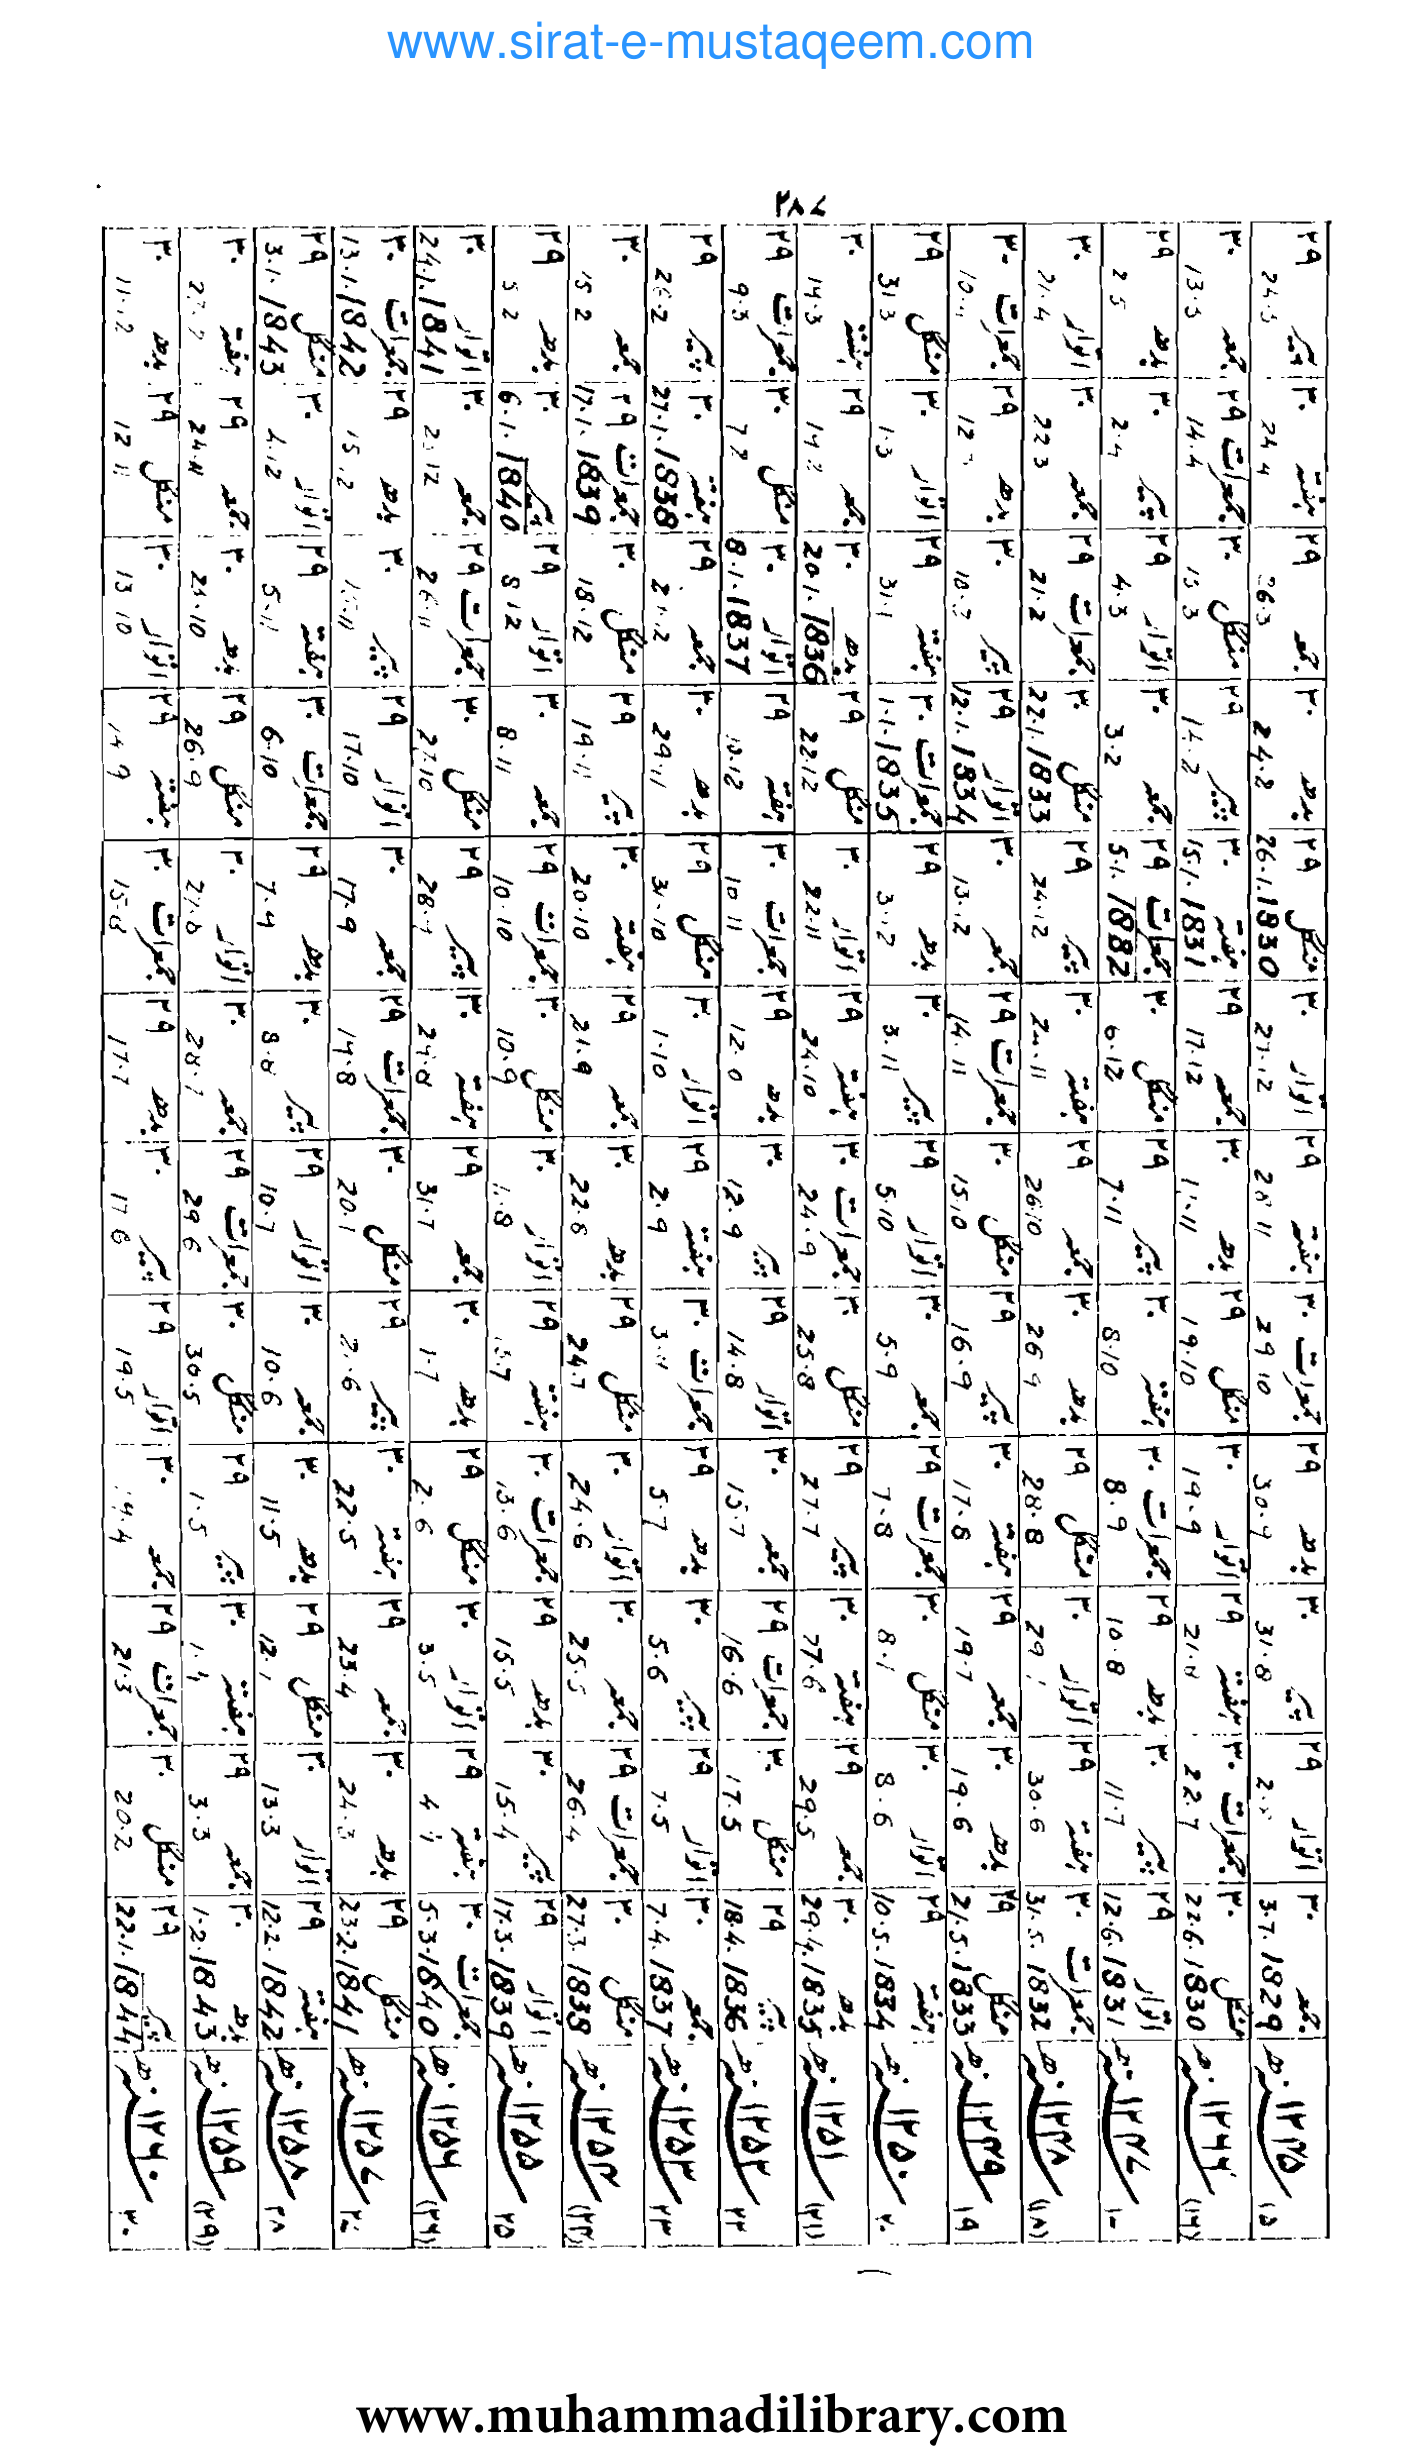 www.sirat-e-mustaqeem.com
۲۸۷
۱۵ ۱۲۴۵ھ جمعہ ۳۰ 3.7.1829 اتوار ۲۹ پیر ۳۰ 31.8 بدھ ۲۹ 30.9 جمعرات ۳۰ 29 10 ہفتہ ۲۹ 28 11 اتوار ۳۰ 27.12 منگل ۲۹ 26.1.1830 بدھ ۳۰ 24.2 جمعہ ۲۹ 26.3 ہفتہ ۳۰ 24 4 پیر ۲۹ 24.5
(۱۶) ۱۲۴۶ھ منگل ۳۰ 22.6.1830 جمعرات ۳۰ 22.7 ہفتہ ۲۹ 21.8 اتوار ۳۰ 19.9 منگل ۲۹ 19.10 بدھ ۳۰ جمعہ ۲۹ 17.12 ہفتہ ۳۰ 15.1.1831 پیر ۲۹ 14.2 منگل ۳۰ 15 3 جمعرات ۲۹ 14.4 جمعہ ۳۰ 13.5
۱۲۴۷ھ اتوار ۲۹ 12.6.1831 پیر ۳۰ 11.7 بدھ ۲۹ 10.8 جمعرات ۳۰ 8.9 ہفتہ ۳۰ 8.10 پیر ۲۹ 7.11 منگل ۳۰ 6.12 جمعرات ۲۹ 5.1.1882 جمعہ ۳۰ 3.2 اتوار ۲۹ 4.3 پیر ۳۰ 2.4 بدھ ۲۹ 2 5
(۱۸) ۱۲۴۸ھ جمعرات ۳۰ 31.5.1832 ہفتہ ۲۹ 30.6 اتوار ۳۰ منگل ۲۹ 28.8 بدھ ۳۰ 26 9 جمعہ ۲۹ 26 10 ہفتہ ۳۰ پیر ۲۹ 24.12 منگل ۳۰ 22.1.1833 جمعرات ۲۹ 21.2 جمعہ ۳۰ 22 3 اتوار ۳۰ 21.4
۱۹ ۱۲۴۹ھ منگل ۲۹ 21.5.1833 بدھ ۳۰ 19.6 جمعہ ۲۹ 19.7 ہفتہ ۳۰ 17.8 پیر ۲۹ 16.9 منگل ۳۰ 15.10 جمعرات ۲۹ 14.11 جمعہ ۳۰ 13.12 اتوار ۲۹ 12.1.1834 پیر ۳۰ بدھ ۲۹ جمعرات ۳۰
۲۰ ۱۲۵۰ھ ہفتہ ۲۹ 10.5.1834 اتوار ۳۰ 8.6 منگل ۳۰ جمعرات ۲۹ 7.8 جمعہ ۳۰ 5.9 اتوار ۲۹ 5.10 پیر ۳۰ 3.11 بدھ ۲۹ 3.12 جمعرات ۳۰ 1.1.1835 ہفتہ ۲۹ 31.1 اتوار ۳۰ 1.3 منگل ۲۹ 31 3
(۲۱) ۱۲۵۱ھ بدھ ۳۰ 29.4.1835 جمعہ ۲۹ 29.5 ہفتہ ۳۰ پیر ۲۹ 27.7 منگل ۳۰ 25.8 جمعرات ۳۰ 24.9 ہفتہ ۲۹ 24.10 اتوار ۳۰ 22.11 منگل ۲۹ 22.12 بدھ ۳۰ 20.1.1836 جمعہ ۲۹ ہفتہ ۳۰ 19.3
۲۲ ۱۲۵۲ھ پیر ۲۹ 18.4.1836 منگل ۳۰ 17.5 جمعرات ۲۹ 16.6 جمعہ ۳۰ 15.7 اتوار ۲۹ 14.8 پیر ۳۰ 12.9 بدھ ۲۹ جمعرات ۳۰ 10 11 ہفتہ ۲۹ 10.12 اتوار ۳۰ 8.1.1837 منگل ۳۰ 7 2 جمعرات ۲۹ 9.3
۲۳ ۱۲۵۳ھ جمعہ ۳۰ 7.4.1837 اتوار ۲۹ 7.5 پیر ۳۰ 5.6 بدھ ۲۹ 5.7 جمعرات ۳۰ ہفتہ ۲۹ 2.9 اتوار ۳۰ 1.10 منگل ۲۹ 31.10 بدھ ۳۰ 29.11 جمعہ ۲۹ ہفتہ ۳۰ 27.1.1838 پیر ۲۹ 26.2
۱۲۵۴ھ منگل ۳۰ 27.3.1838 جمعرات ۲۹ 26.4 جمعہ ۳۰ 25.5 اتوار ۳۰ 24.6 منگل ۲۹ 24.7 بدھ ۳۰ 22.8 جمعہ ۲۹ 21.9 ہفتہ ۳۰ 20.10 پیر ۲۹ 19.11 منگل ۳۰ 18.12 جمعرات ۲۹ 17.1.1839 جمعہ ۳۰ 15 2
۲۵ ۱۲۵۵ھ اتوار ۲۹ 17.3.1839 پیر ۳۰ 15.4 بدھ ۲۹ 15.5 جمعرات ۳۰ 13.6 ہفتہ ۲۹ اتوار ۳۰ منگل ۳۰ 10.9 جمعرات ۲۹ 10.10 جمعہ ۳۰ 8.11 اتوار ۲۹ 8.12 پیر ۳۰ 6.1.1840 بدھ ۲۹ 5 2
(۲۶) ۱۲۵۶ھ جمعرات ۳۰ 5.3.1840 ہفتہ ۲۹ 4 4 اتوار ۳۰ 3.5 منگل ۲۹ 2.6 بدھ ۳۰ 1.7 جمعہ ۲۹ 31.7 ہفتہ ۳۰ 29.8 پیر ۲۹ 28.9 منگل ۳۰ 27.10 جمعرات ۲۹ 26.11 جمعہ ۳۰ اتوار ۳۰ 24.1.1841
۱۲۵۷ھ منگل ۲۹ 23.2.1841 بدھ ۳۰ 24.3 جمعہ ۲۹ 23.4 ہفتہ ۳۰ 22.5 پیر ۲۹ منگل ۳۰ جمعرات ۲۹ 19.8 جمعہ ۳۰ 17.9 اتوار ۲۹ 17.10 پیر ۳۰ بدھ ۲۹ 15.12 جمعرات ۳۰ 13.1.1842
۲۸ ۱۲۵۸ھ ہفتہ ۲۹ 12.2.1842 اتوار ۳۰ 13.3 منگل ۲۹ بدھ ۳۰ 11.5 جمعہ ۳۰ 10.6 اتوار ۲۹ 10.7 پیر ۳۰ 8.8 بدھ ۲۹ 7.9 جمعرات ۳۰ 6.10 ہفتہ ۲۹ 5.11 اتوار ۳۰ 4.12 منگل ۲۹ 3.1.1843
(۲۹) ۱۲۵۹ھ بدھ ۳۰ 1.2.1843 جمعہ ۲۹ 3.3 ہفتہ ۳۰ 1.4 پیر ۲۹ 1.5 منگل ۳۰ 30.5 جمعرات ۲۹ 29 6 جمعہ ۳۰ 28.7 اتوار ۳۰ منگل ۲۹ 26.9 بدھ ۳۰ جمعہ ۲۹ 24.11 ہفتہ ۳۰
۳۰ ۱۲۶۰ھ پیر ۲۹ 22.1.1844 منگل ۳۰ 20.2 جمعرات ۲۹ 21.3 جمعہ ۳۰ اتوار ۲۹ 19.5 پیر ۳۰ 17 6 بدھ ۲۹ 17.7 جمعرات ۳۰ 15.8 ہفتہ ۲۹ 14 9 اتوار ۳۰ 13 10 منگل ۲۹ 12 11 بدھ ۳۰ 11.12
www.muhammadilibrary.com